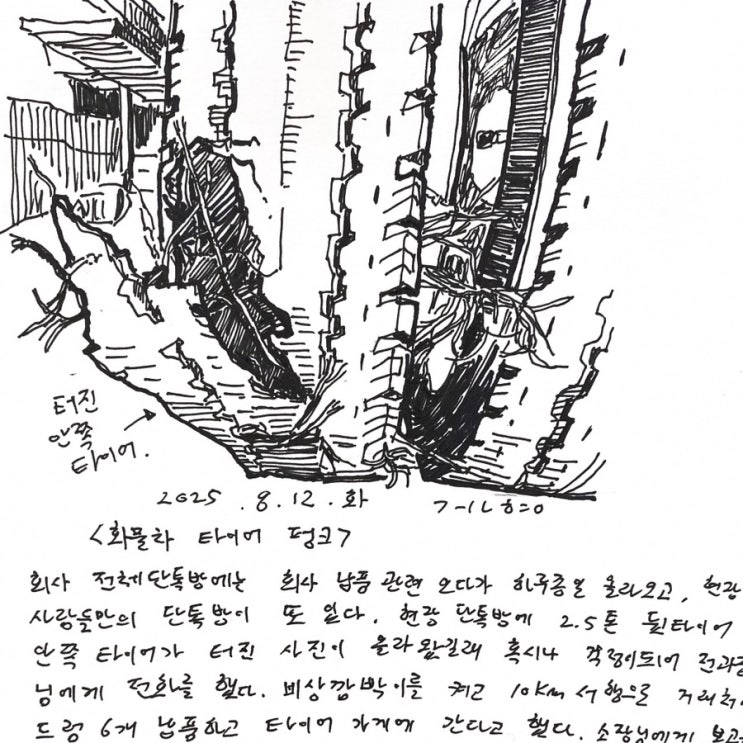 터진
안쪽
타이어.
2025. 8.12. 화
<화물차 타이어 펑크>
회사 전체단톡방에는 회사 납품 관련 오다가 하루종일 올라오고, 현장
사람들만의 단톡방이 또 있다. 현장 단톡방에 2.5톤 뒷타이어
안쪽 타이어가 터진 사진이 올라왔길래 혹시나 걱정이되어 전과장
님에게 전화를 했다. 비상깜박이를 켜고 10km 서행으로 거래처에
드럼 6개 납품하고 타이어 가게에 간다고 했다. 소장님에게 보고